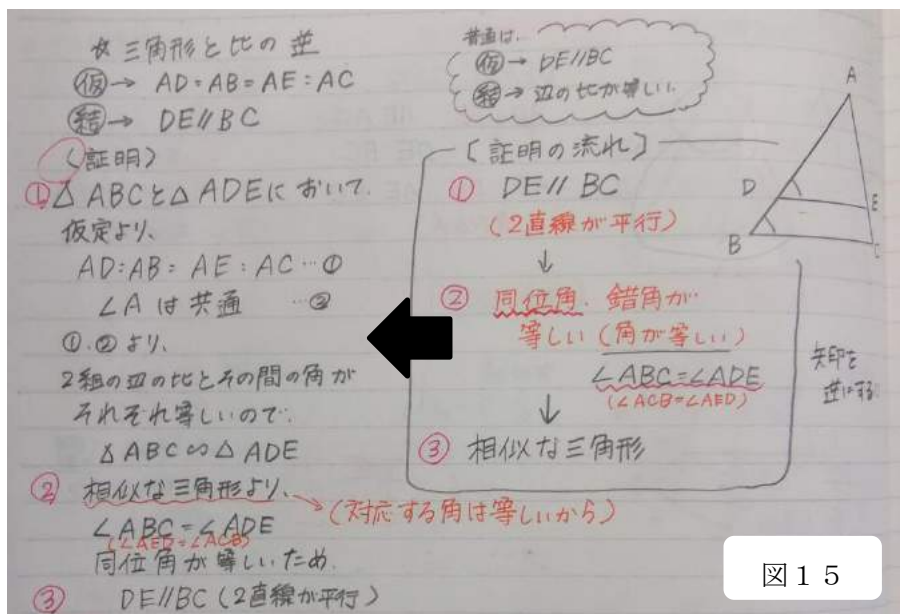 ☆ 三角形と比の逆
仮→ AD:AB=AE:AC
結→ DE//BC
(証明)
① △ABCと△ADEにおいて.
仮定より、
AD:AB=AE:AC…①
∠Aは共通 …②
①.②より、
2組の辺の比とその間の角が
それぞれ等しいので.
△ABC∽△ADE
② 相似な三角形より、→(対応する角は等しいから)
∠ABC=∠ADE
(∠AED=∠ACB)
同位角が等しいため.
③ DE//BC (2直線が平行)
普通は、
仮→ DE//BC
結→ 辺の比が等しい.
[証明の流れ]
① DE//BC
(2直線が平行)
↓
② 同位角.錯角が
等しい(角が等しい)
∠ABC=∠ADE
(∠ACB=∠AED)
↓
③ 相似な三角形
矢印を
逆にする
A
D
E
B
C
図15